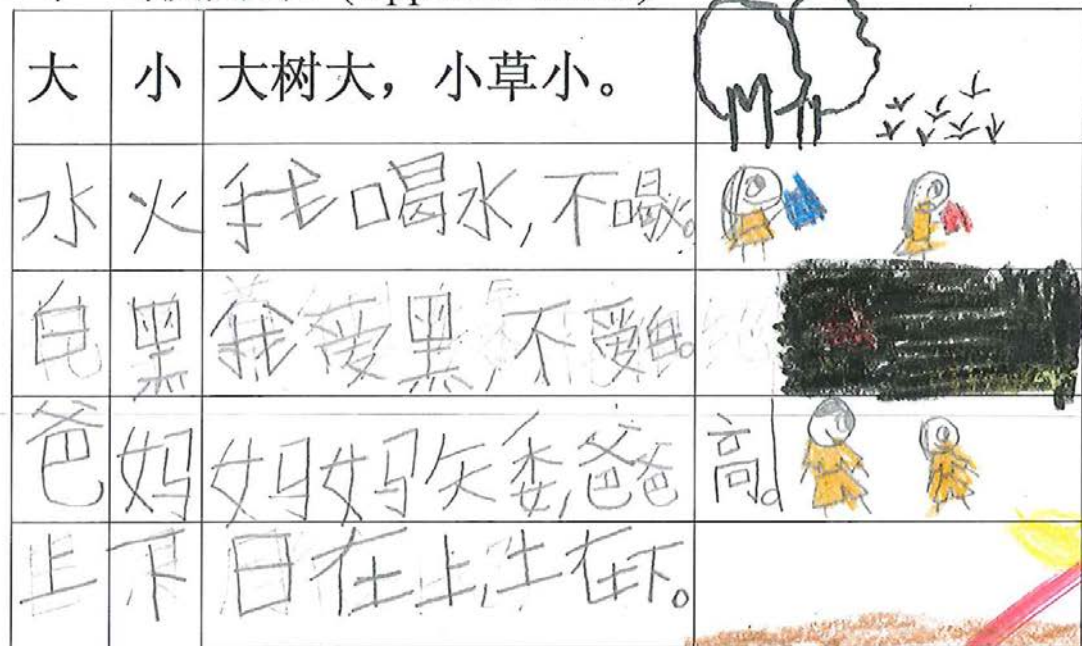 大 小 大树大，小草小。
水 火 我喝水,不喝火。
白 黑 我爱黑,不爱白。
爸 妈 妈妈矢委,爸爸高。
上 下 日在上,土在下。